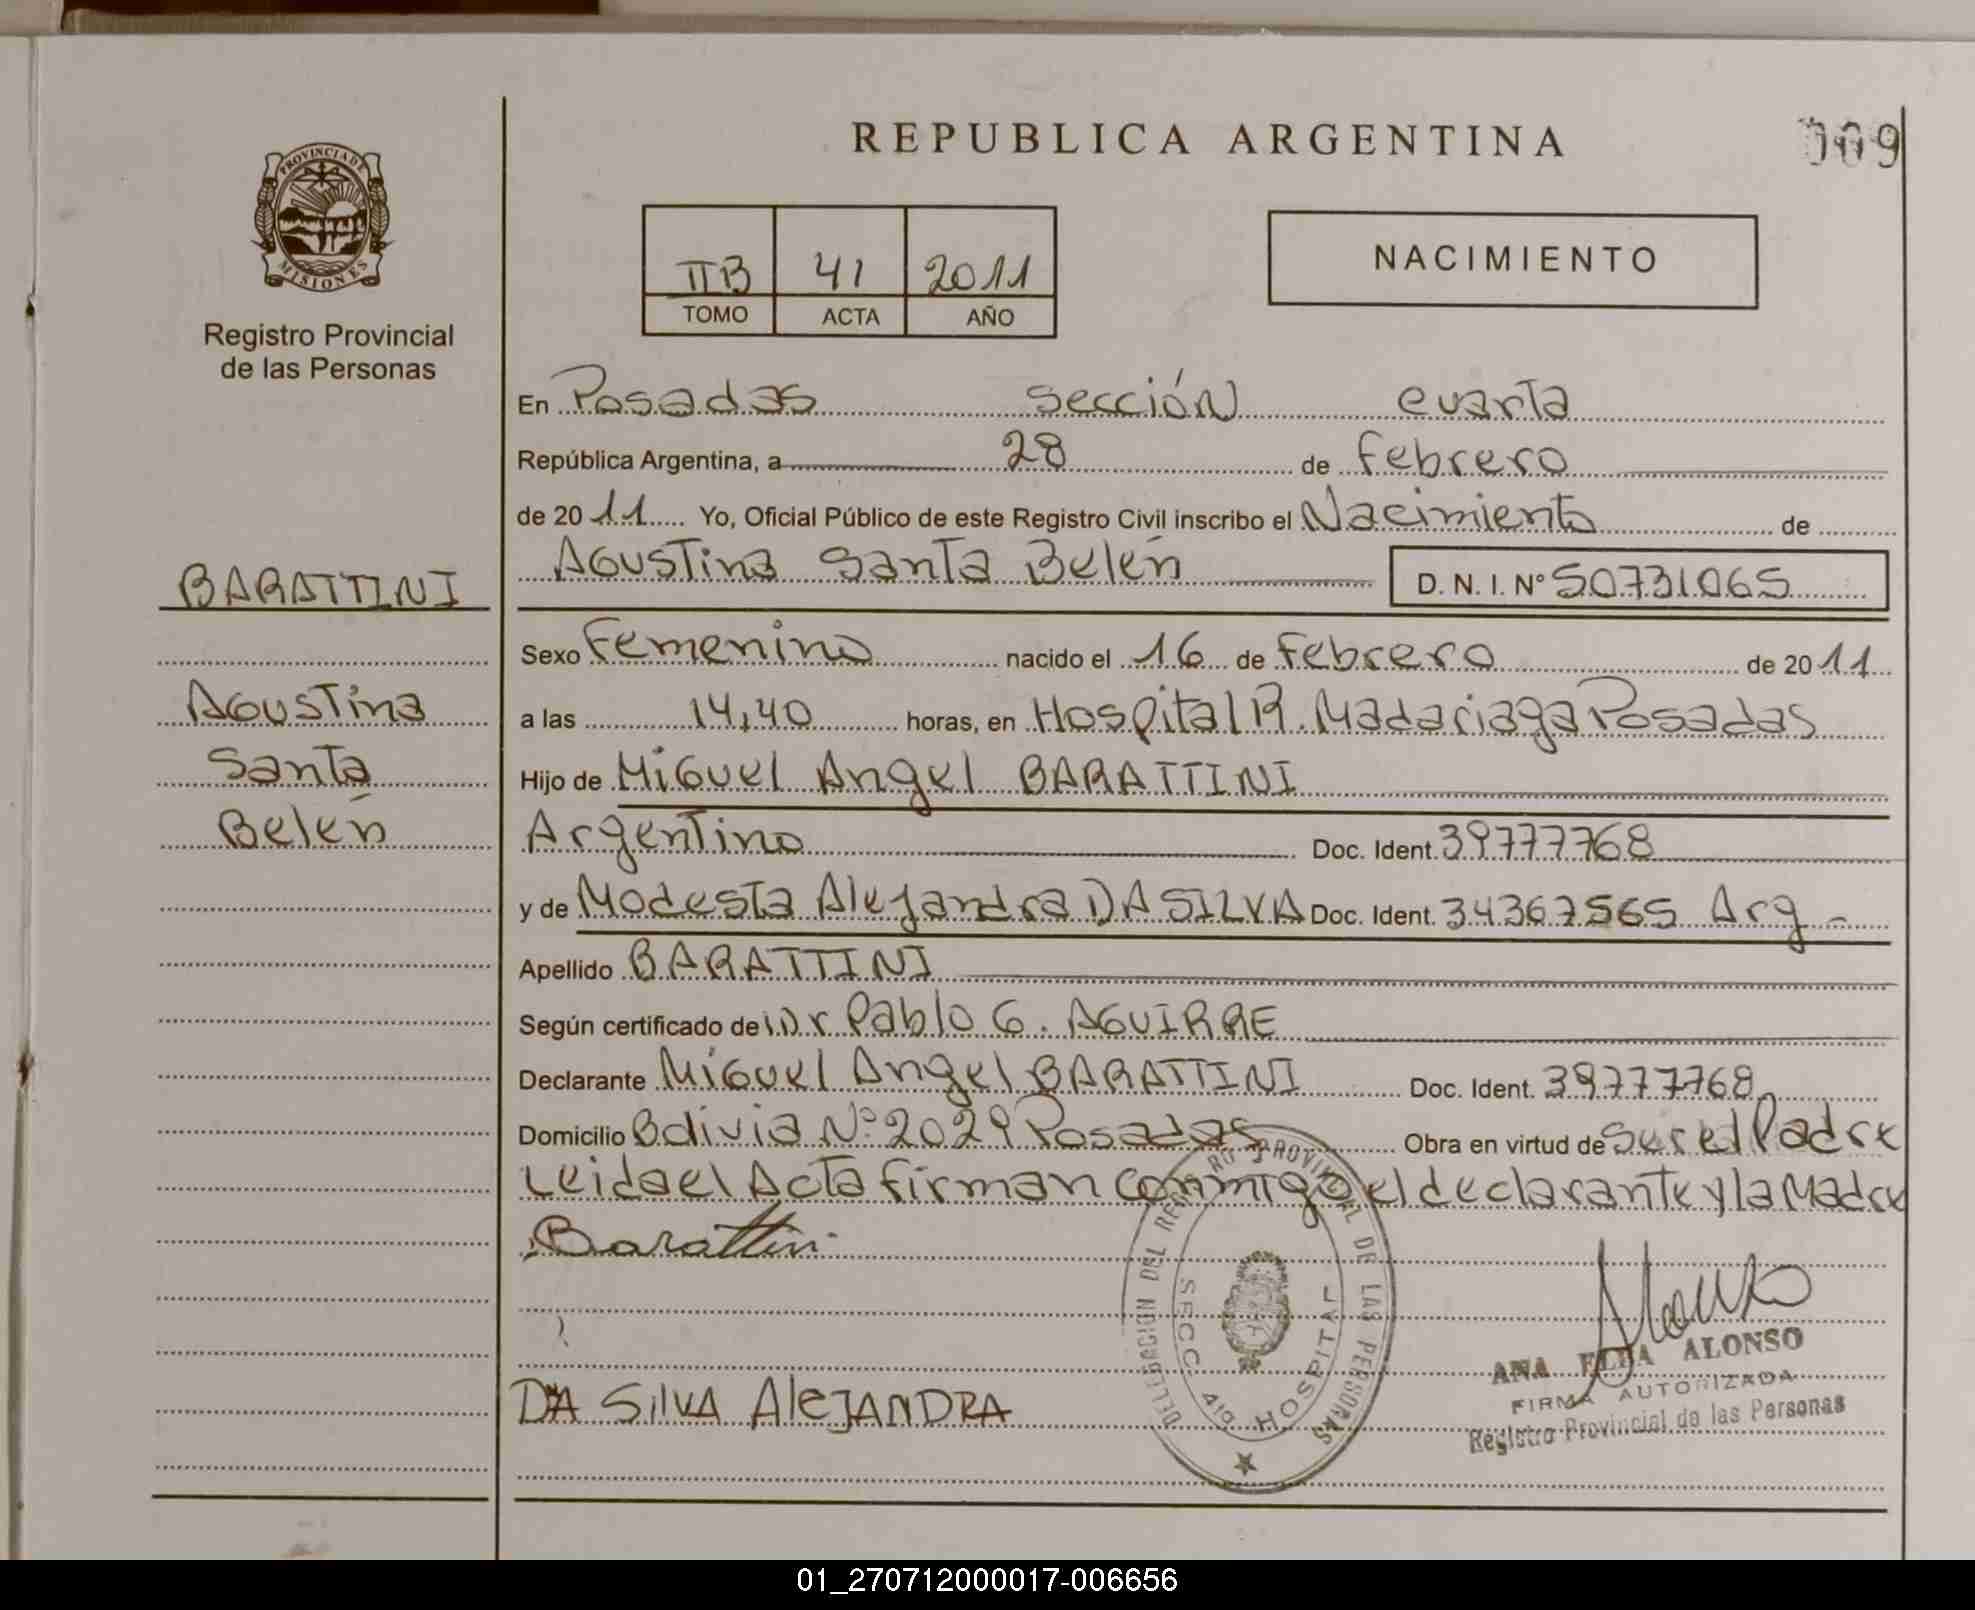 REPUBLICA ARGENTINA
009
PROVINCIA DE
MISIONES
Registro Provincial
de las Personas
IIB 41 2011
TOMO ACTA AÑO
NACIMIENTO
En Posadas sección cuarta
República Argentina, a 28 de febrero
de 2011 Yo, Oficial Público de este Registro Civil inscribo el Nacimiento de
Agustina Santa Belén D. N. I. Nº 50731065
BARATTINI
Agustina
Santa
Belén
Sexo femenino nacido el 16 de febrero de 2011
a las 14,40 horas, en Hospital R. Madariaga Posadas
Hijo de Miguel Angel BARATTINI
Argentino Doc. Ident. 39777768
y de Modesta Alejandra DA SILVA Doc. Ident. 34367565 Arg -
Apellido BARATTINI
Según certificado de Dr Pablo G. AGUIRRE
Declarante Miguel Angel BARATTINI Doc. Ident. 39777768
Domicilio Bolivia Nº 2029 Posadas Obra en virtud de ser el Padre
Leida el Acta firman conmigo el declarante y la Madre
Barattini
DA SilVA AleJANDRA
DELEGACION DEL REGISTRO PROVINCIAL DE LAS PERSONAS
SECC. 4ta HOSPITAL
Alonso
ANA ELBA ALONSO
FIRMA AUTORIZADA
Registro Provincial de las Personas
01_270712000017-006656